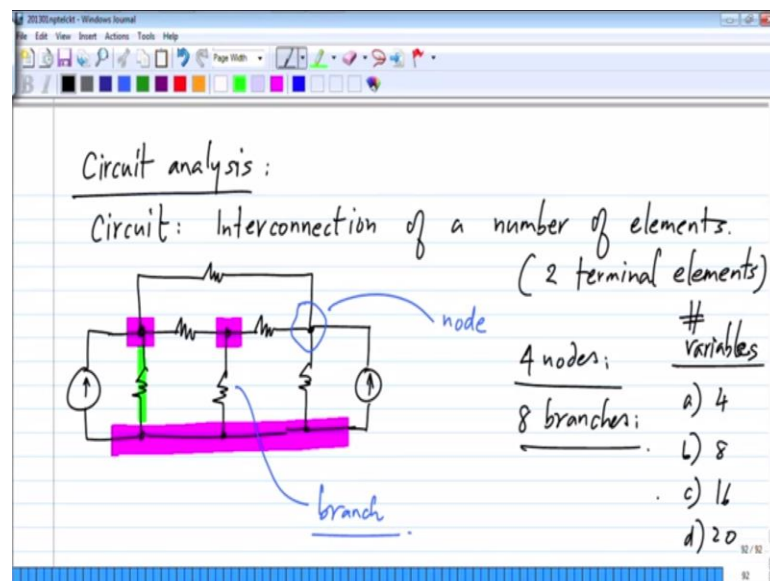 201301nptelckt - Windows Journal
File Edit View Insert Actions Tools Help
Page Width
B I
Circuit analysis :
Circuit : Interconnection of a number of elements.
(2 terminal elements)
node
4 nodes ;
8 branches ;
branch
#
variables
a) 4
b) 8
c) 16
d) 20
92 / 92
92